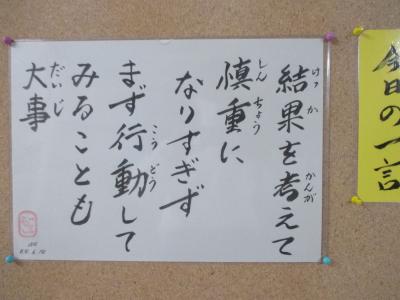 今日の一言
結果を考えて
けっか
かんが
慎重に
しんちょう
なりすぎず
まず行動して
こうどう
みることも
大事
だいじ